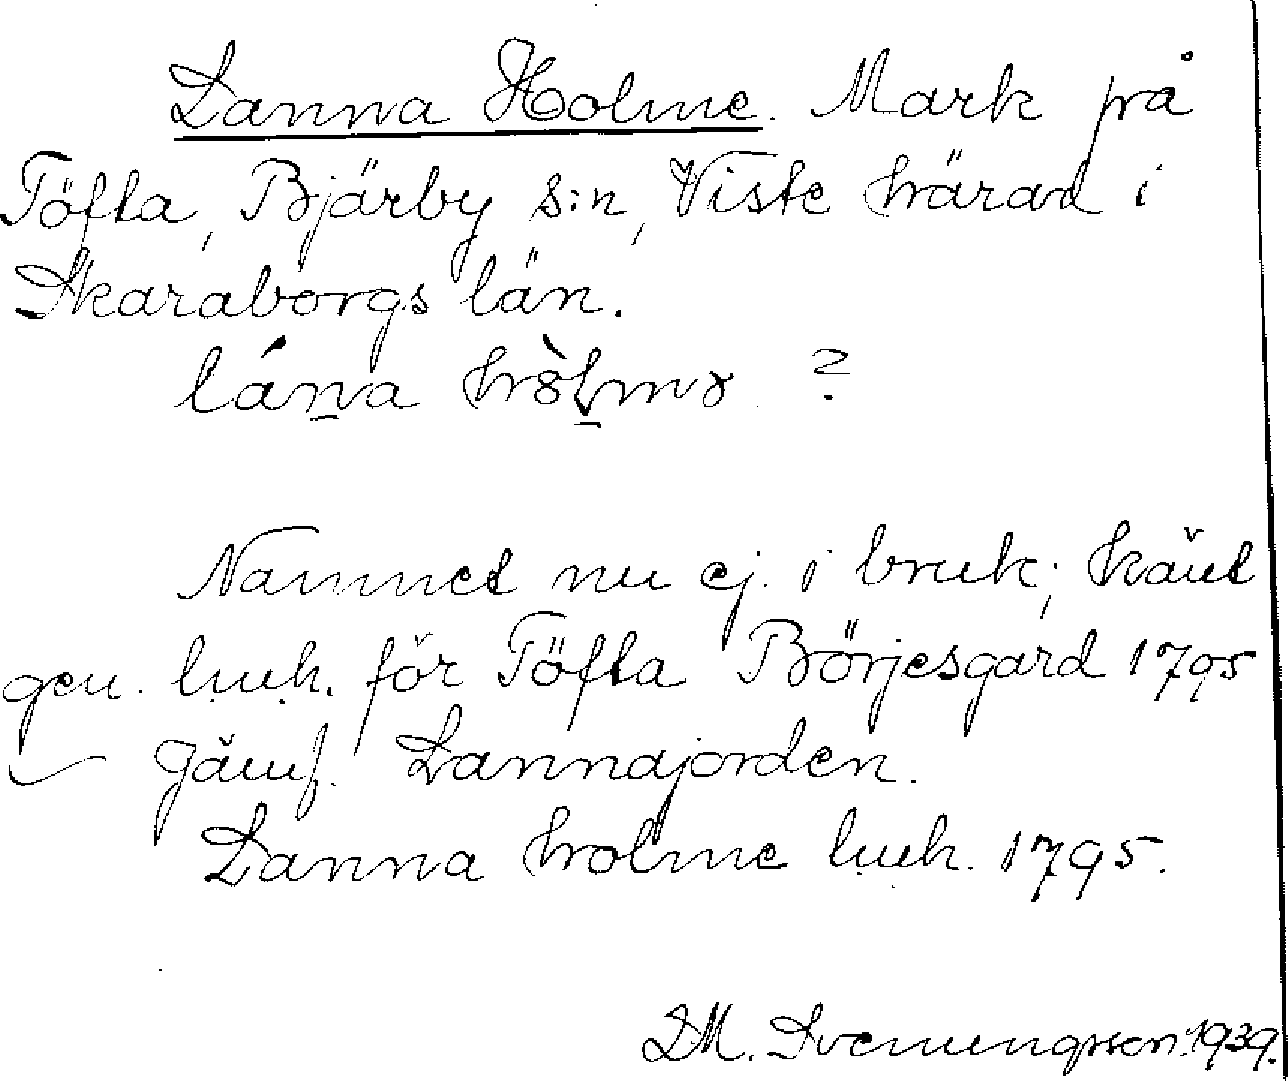 Lanna Holme. Mark på
Töfta, Bjärby s:n, Viste härad i
Skaraborgs län.
lána hòlmə ?
Namnet nu ej i bruk; känt
gen. l.u.h. för Töfta Börjesgård 1795
Jämf. Lannajorden.
Lanna holme l.u.h. 1795.
D.M. Svenungsson. 1939.